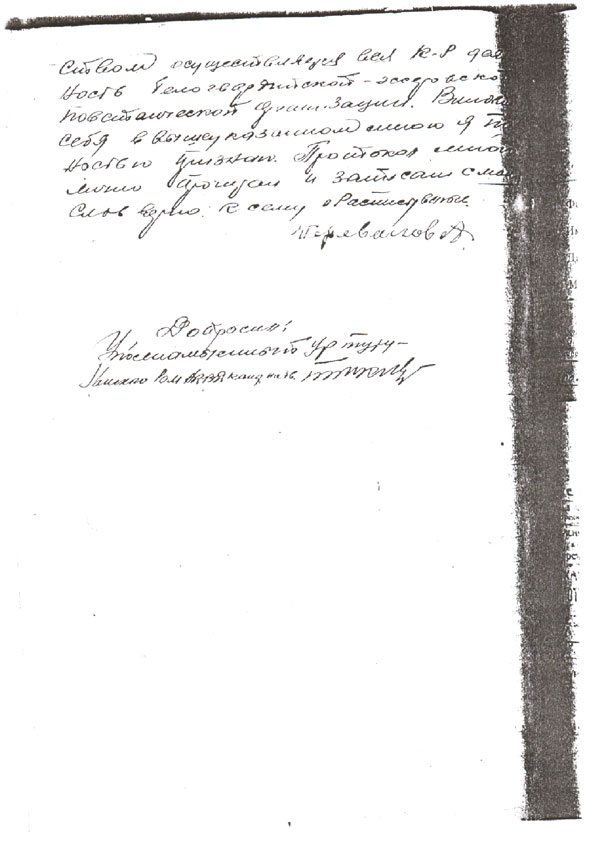 ством осуществляется вся К-Р дея
ность белогвардейской-эсеровской
повстанческой организации. Виновн
себя в вышеуказанном мною я по
ностью признаю. Протокол мной
лично прочитан и записан с мо
слов верно. К сему расписываюсь
Перевалов А
Допросил: